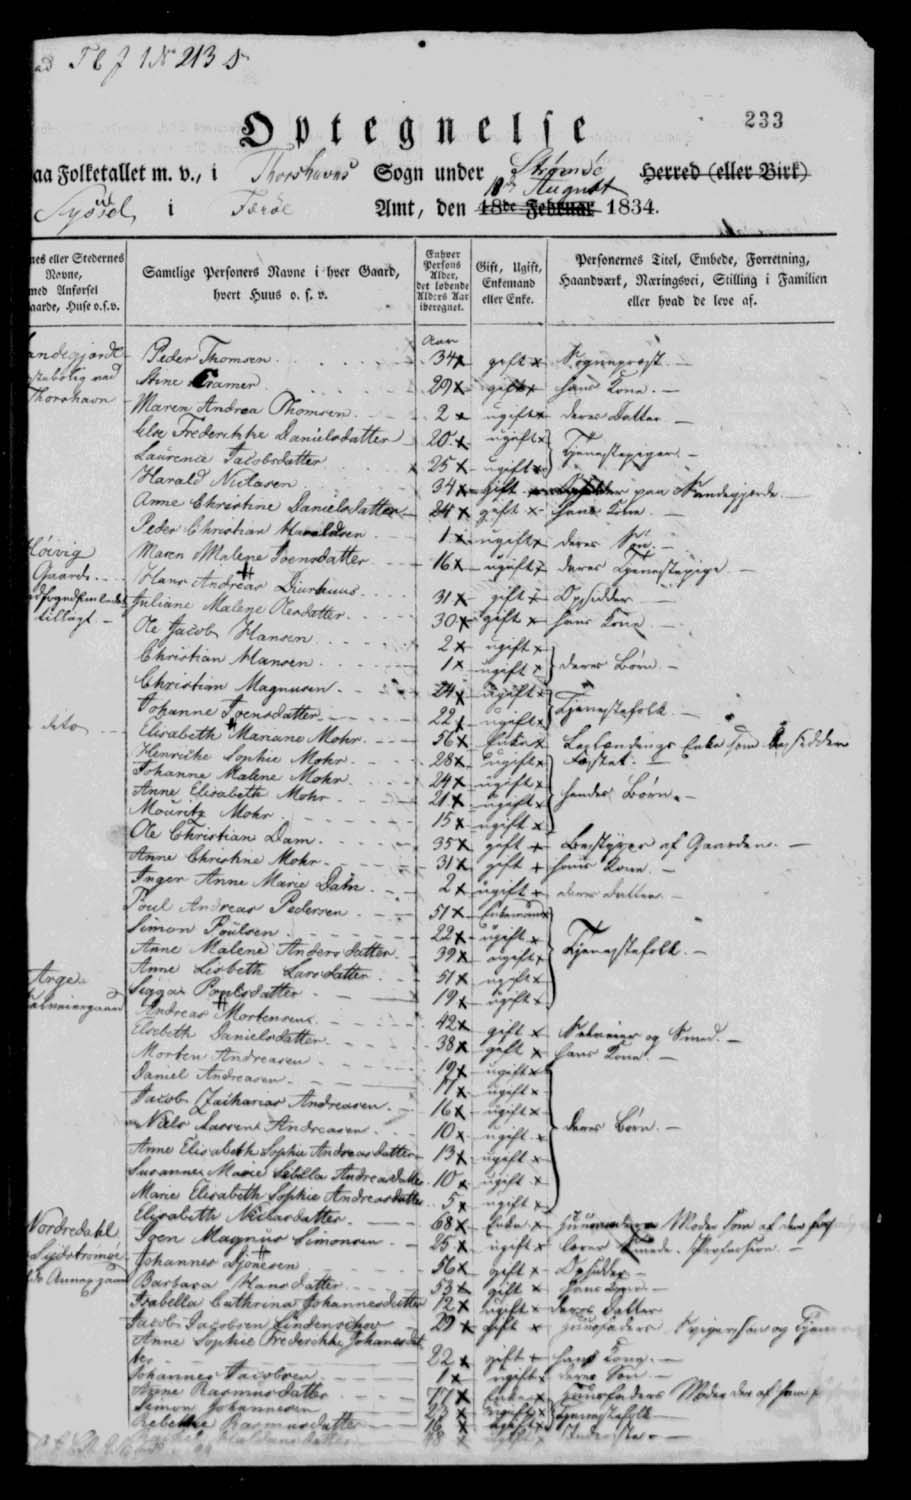 No 213
233
Optegnelse
aa Folketallet m. v., i Thorshavns Sogn under Strømsö Herred (eller Birk)
Sÿssel i Færöe Amt, den 18de Februar August 1834.
nes eller Stedernes Navne, med Anførsel aarde, Huse o.s.v.
Samtlige Personers Navne i hver Gaard, hvert Huus o. s. v.
Enhver Persons Alder, det løbende Alders Aar iberegnet.
Gift, Ugift, Enkemand eller Enke.
Personernes Titel, Embede, Forretning, Haandværk, Næringsvei, Stilling i Familien eller hvad de leve af.
Aar
Peder Thomsen 34 gift Sogneprest
Thorshavn
Stine Cramer 29 gift hans Kone
Maren Andrea Thomsen 2 ugift deres Datter
Else Frederikke Danielsdatter 20 ugift
Laurence Jacobsdatter 25 ugift Tjenestepiger
Harald Niclasen 34 gift Opsidder paa Sandegjerde
Anne Christine Danielsdatter 24 gift hans Kone
Peder Christian Haraldsen 1 ugift deres Søn
Maren Malene Joensdatter 16 ugift deres Tjenestepige
Høivig
Gaard
tillagt
Hans Andreas Diurhuus 31 gift Opsidder
Juliane Malene Olesdatter 30 gift hans Kone
Ole Jacob Hansen 2 ugift
Christian Hansen 1 ugift deres Børn
Christian Magnusen 24 ugift
Johanne Joensdatter 22 ugift Tjenestefolk
dito
Elisabeth Mariane Mohr 56 Enke Enke som besidder Fæstet
Henrikke Sophie Mohr 28 ugift
Johanne Malene Mohr 24 ugift
Anne Elisabeth Mohr 21 ugift hendes Børn
Mouritz Mohr 15 ugift
Ole Christian Dam 35 gift Bestyrer af Gaarden
Anne Christine Mohr 31 gift hans Kone
Inger Anne Marie Dam 2 ugift deres Datter
Poul Andreas Pedersen 51 Enkemand
Simon Poulsen 22 ugift
Anne Malene Andersdatter 39 ugift Tjenestefolk
Anne Lisbeth Larsdatter 51 ugift
Sigga Poulsdatter 19 ugift
Arge
Andreas Mortensen 42 gift og Smed
Elsebeth Danielsdatter 38 gift hans Kone
Morten Andreasen 19 ugift
Daniel Andreasen 17 ugift
Jacob Zacharias Andreasen 16 ugift
Niels Andreasen 10 ugift deres Børn
Anne Elisabeth Sophie Andreasdatter 13 ugift
Susanne Marie Sibilla Andreasdatter 10 ugift
Marie Elisabeth Sophie Andreasdatter 5 ugift
Elisabeth Niclasdatter 68 Enke Huusfaderens Moder som af
Nordredahl
Sydstromöe
Joen Magnus Simonsen 25 ugift lærer Smede Profession
Johannes Djonesen 56 gift Opsidder
Barbara Hansdatter 53 gift hans Kone
Isabella Cathrina Johannesdatter 12 ugift deres Datter
Jacob Jacobsen Lindenschov 29 gift Huusfaders Svigersøn og
Anne Sophie Frederikke Johannesdatter 22 gift hans Kone
Johannes Jacobsen 1 ugift deres Søn
Anne Rasmusdatter 77 Enke Huusfaders Moder
Simon Johannesen 23 ugift Tjenestefolk
Rebekke Rasmusdatter 16 ugift